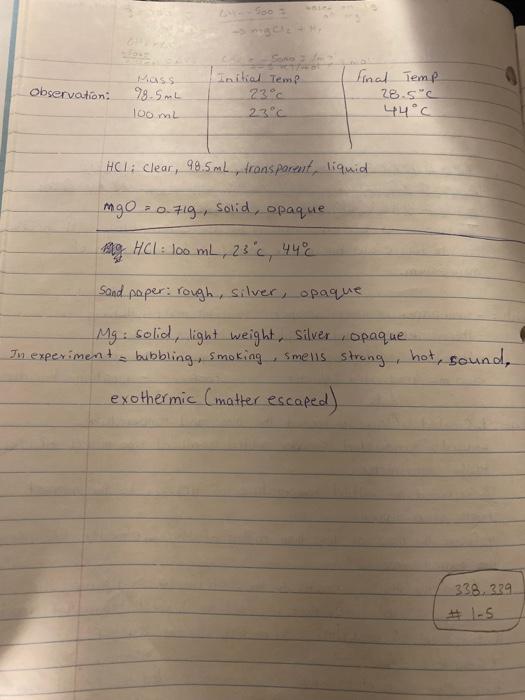 → mgCl2 + H2
Mass Initial Temp Final Temp
Observation: 98.5mL 23°c 28.5°C
100 mL 23°C 44°C
HCl: clear, 98.5mL, transparent, liquid
mgO = 0.71g, solid, opaque
HCl: 100 mL, 23°c, 44°c
Sand paper: rough, silver, opaque
Mg: solid, light weight, silver, opaque
In experiment = bubbling, smoking, smells strong, hot, sound,
exothermic (matter escaped)
338, 339
# 1-5